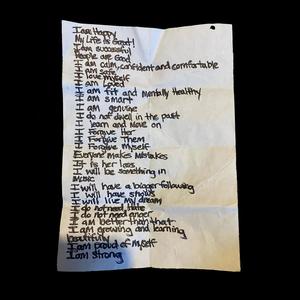 I am Happy
My Life is Great!
I am successful
People are Good
I am calm, confident and comfortable
I am safe
I love myself
I am Loved
I am fit and mentally Healthy
I am smart
I am genuine
I do not dwell in the past
I learn and move on
I Forgive Her
I Forgive Them
I Forgive Myself
Everyone makes mistakes
It is her loss
I will be something in
Music
I will have a bigger following
I will have shows
I will live my dream
I do not need hate
I do not need anger
I am better than that
I am growing and learning
beautifully
I am proud of myself
I am strong